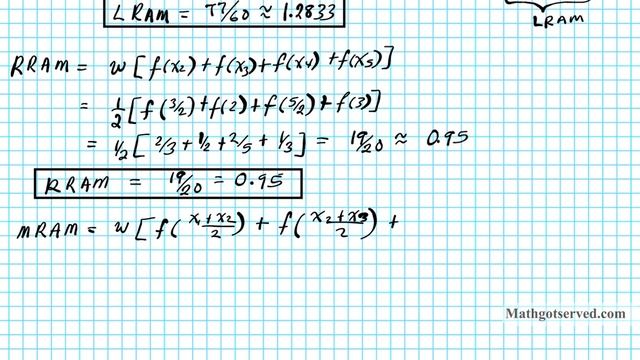 LRAM = 77/60 ≈ 1.2833
LRAM
RRAM = w[f(x₂) + f(x₃) + f(x₄) + f(x₅)]
= 1/2[f(3/2) + f(2) + f(5/2) + f(3)]
= 1/2[2/3 + 1/2 + 2/5 + 1/3] = 19/20 ≈ 0.95
RRAM = 19/20 = 0.95
MRAM = w[f((x₁+x₂)/2) + f((x₂+x₃)/2) +
Mathgotserved.com